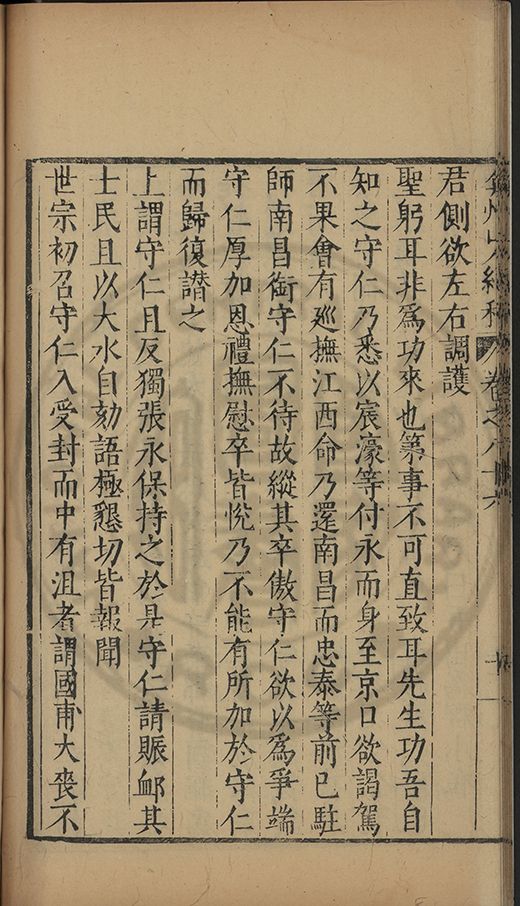 弇州史料 卷之八十六
君側欲左右調護
聖躬耳非爲功來也第事不可直致耳先生功吾自
知之守仁乃悉以宸濠等付永而身至京口欲謁駕
不果會有廵撫江西命乃還南昌而忠泰等前已駐
師南昌銜守仁不待故縱其卒傲守仁欲以爲爭端
守仁厚加恩禮撫慰卒皆悅乃不能有所加於守仁
而歸復譖之
上謂守仁且反獨張永保持之於是守仁請賑邺其
士民且以大水自劾語極懇切皆報聞
世宗初召守仁入受封而中有沮者謂國甫大喪不